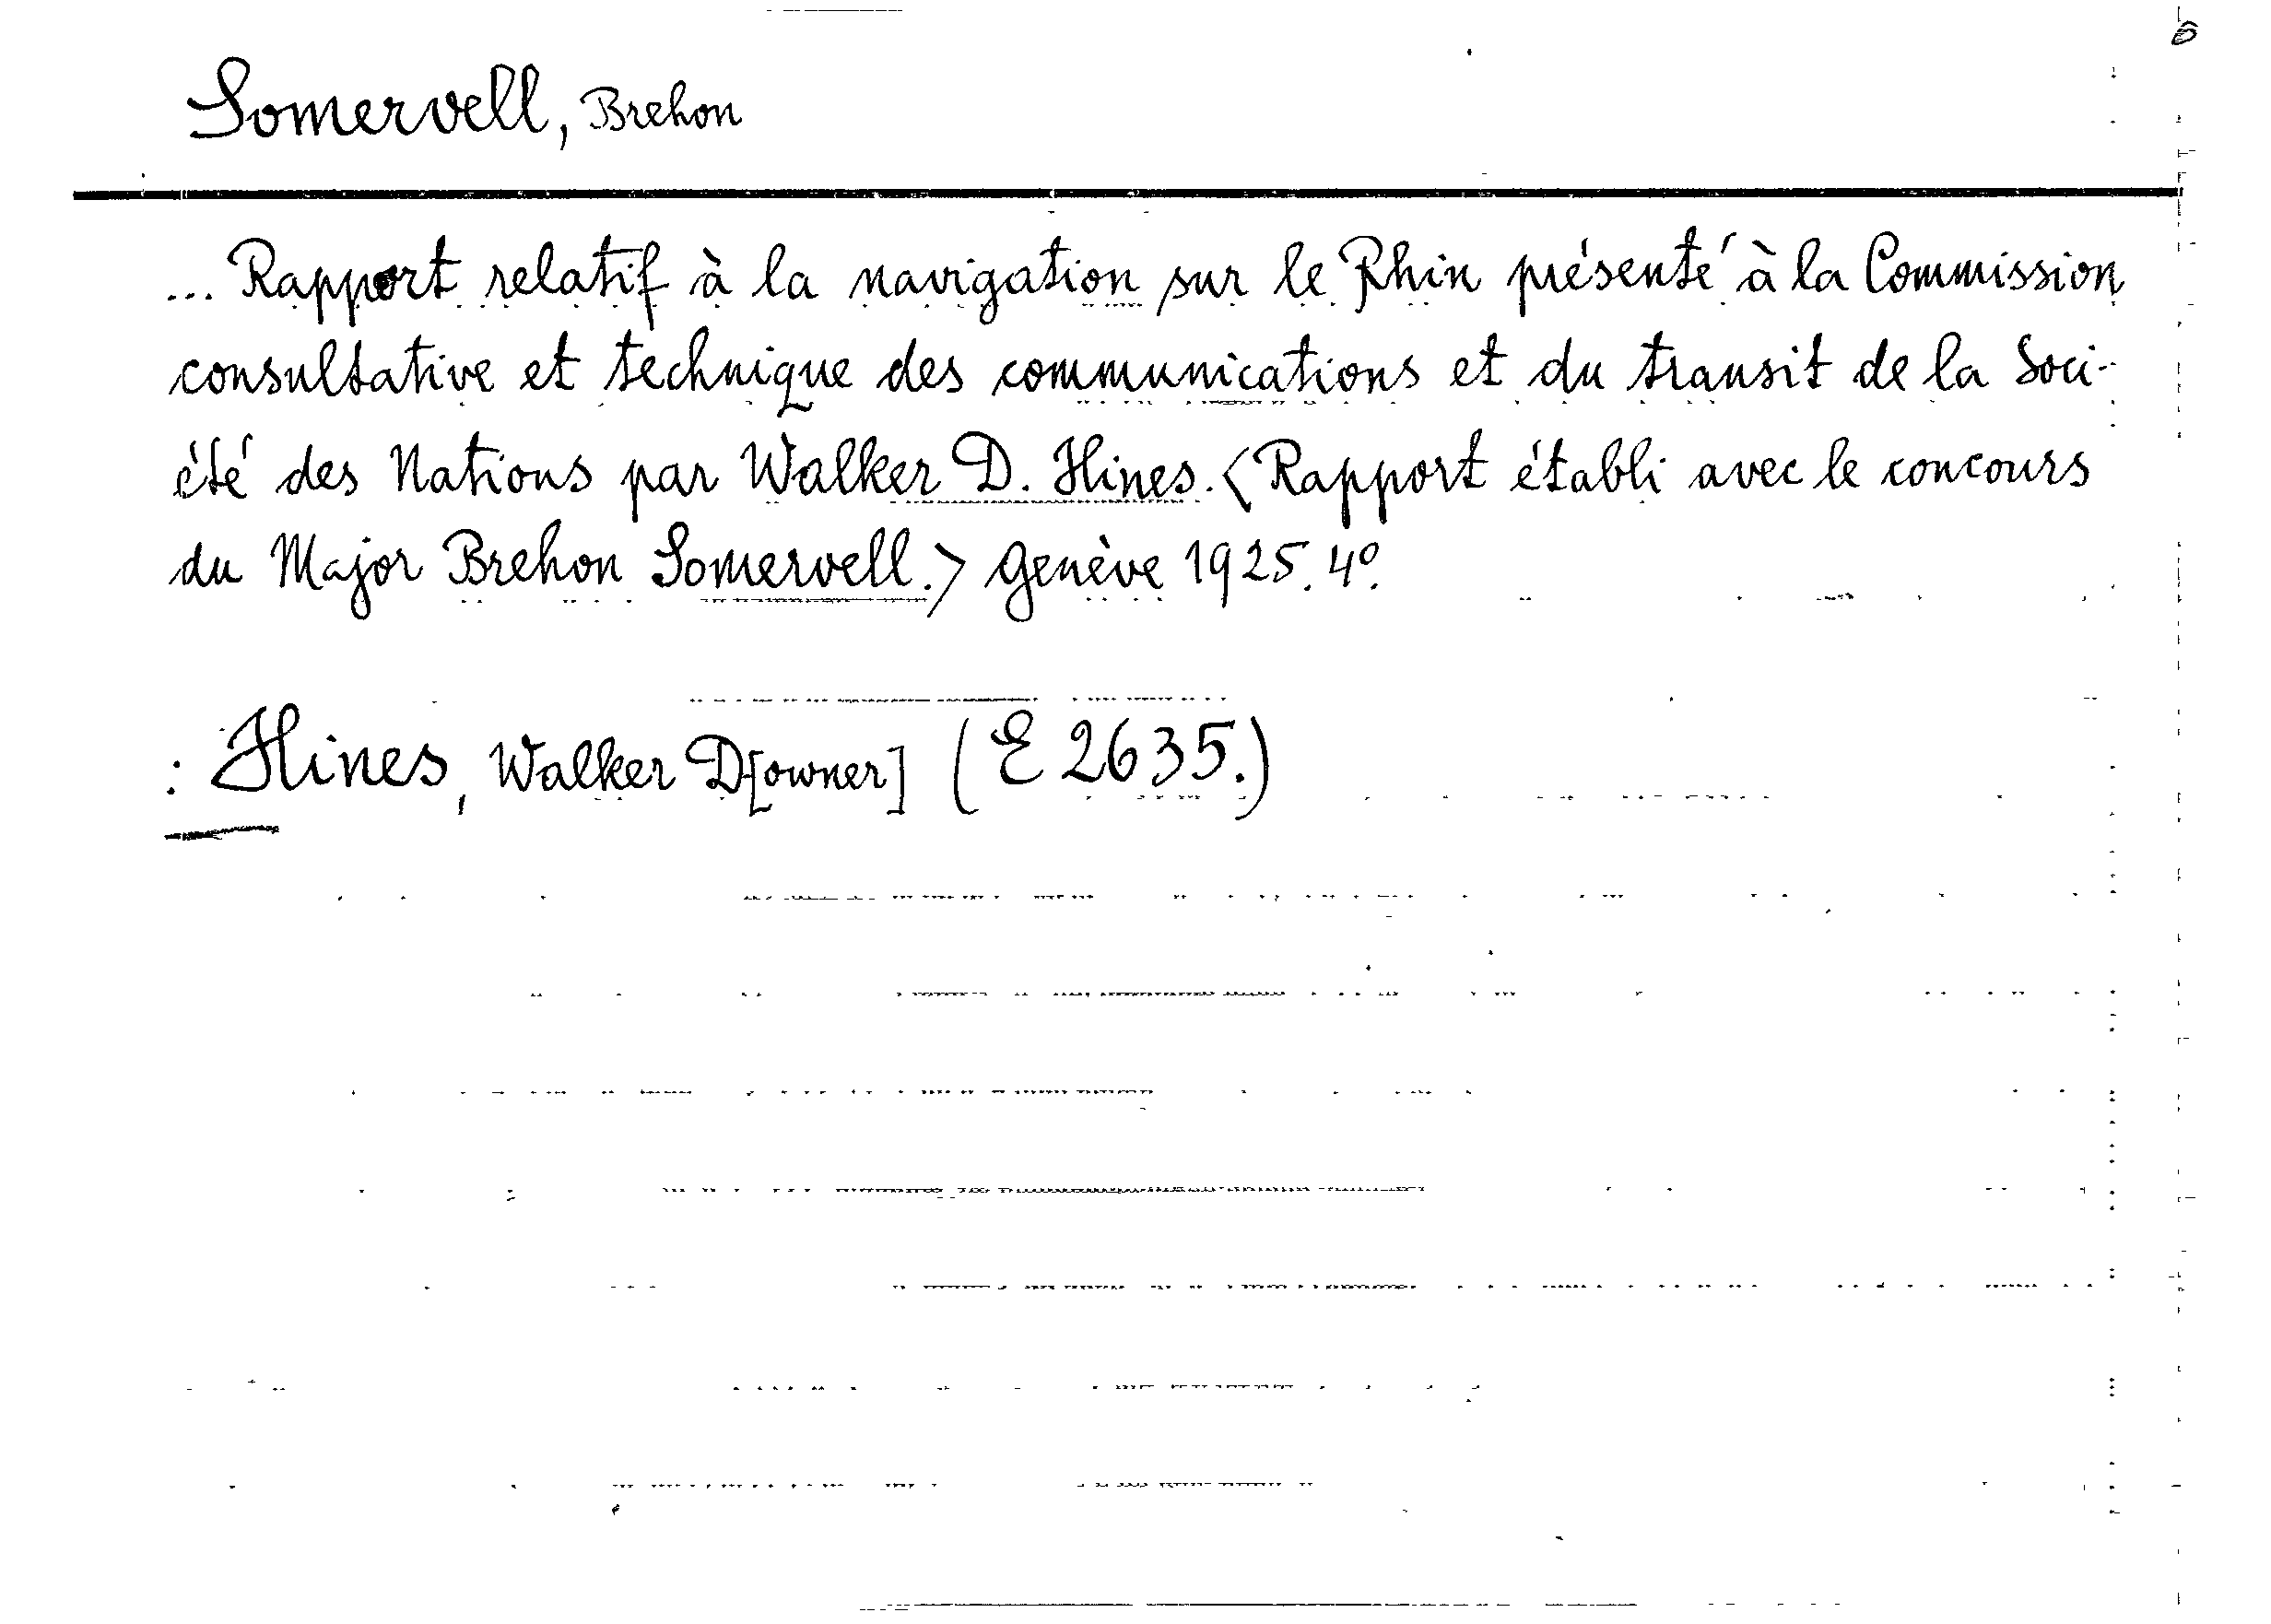 6
Somervell, Brehon
... Rapport relatif à la navigation sur le Rhin présenté à la Commission
consultative et technique des communications et du transit de la Soci-
été des Nations par Walker D. Hines. <Rapport établi avec le concours
du Major Brehon Somervell.> Genève 1925. 4º.
: Hines, Walker D[owner] (E 2635.)